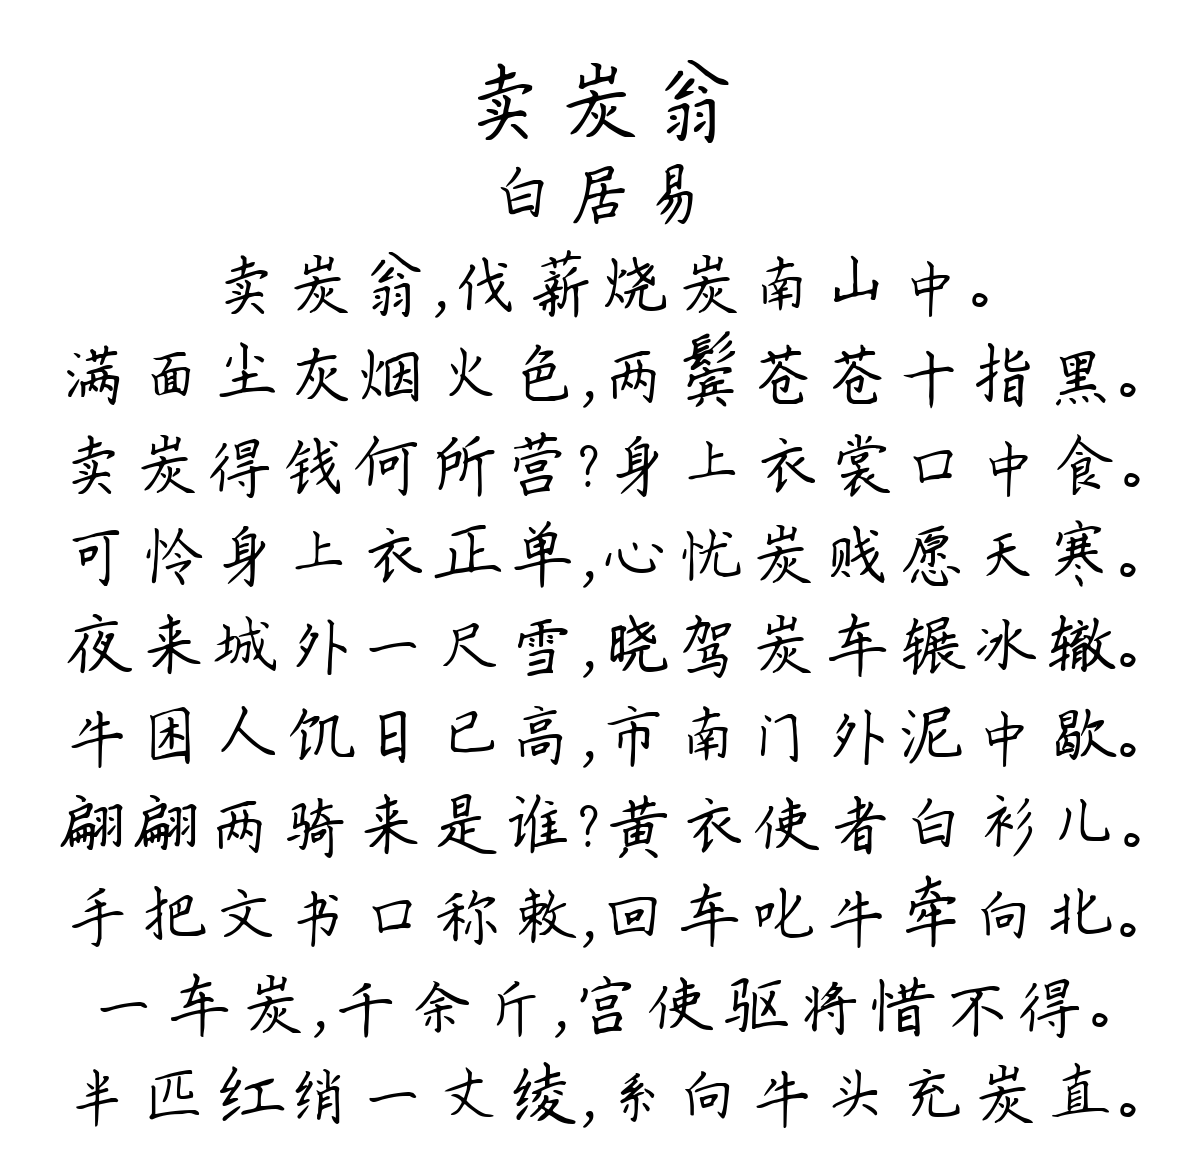 卖炭翁
白居易
卖炭翁,伐薪烧炭南山中。
满面尘灰烟火色,两鬓苍苍十指黑。
卖炭得钱何所营?身上衣裳口中食。
可怜身上衣正单,心忧炭贱愿天寒。
夜来城外一尺雪,晓驾炭车辗冰辙。
牛困人饥日已高,市南门外泥中歇。
翩翩两骑来是谁?黄衣使者白衫儿。
手把文书口称敕,回车叱牛牵向北。
一车炭,千余斤,宫使驱将惜不得。
半匹红绡一丈绫,系向牛头充炭直。